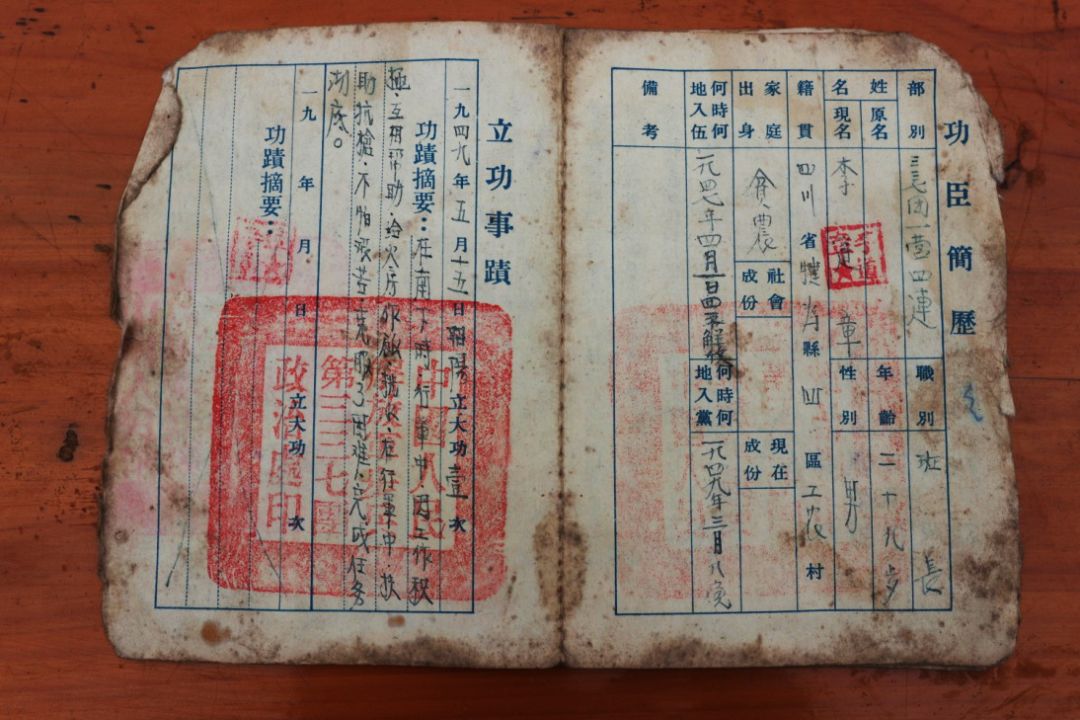 功臣簡歷
部別 三三七团一营四連 職別 班長
姓名 原名 現名 李 章 年齡 二十九岁
性別 男
籍貫 四川省犍为縣四區工农村
家庭出身 貧農 社會成份 現在成份
何時何地入伍 一九四七年四月一日四平解放 何時何地入黨 一九四九年三月八
備考
立功事蹟
一九四九年五月十五日 立大功壹次
功蹟摘要：在南下時行軍中因工作积
極．互相帮助．给火房 在行軍中．扶
助抗槍．不怕艰苦克服了困难．完成任务
澈底。
一九 年 月 日 立大功 次
功蹟摘要：
中國人民
第三三七團
政治處印